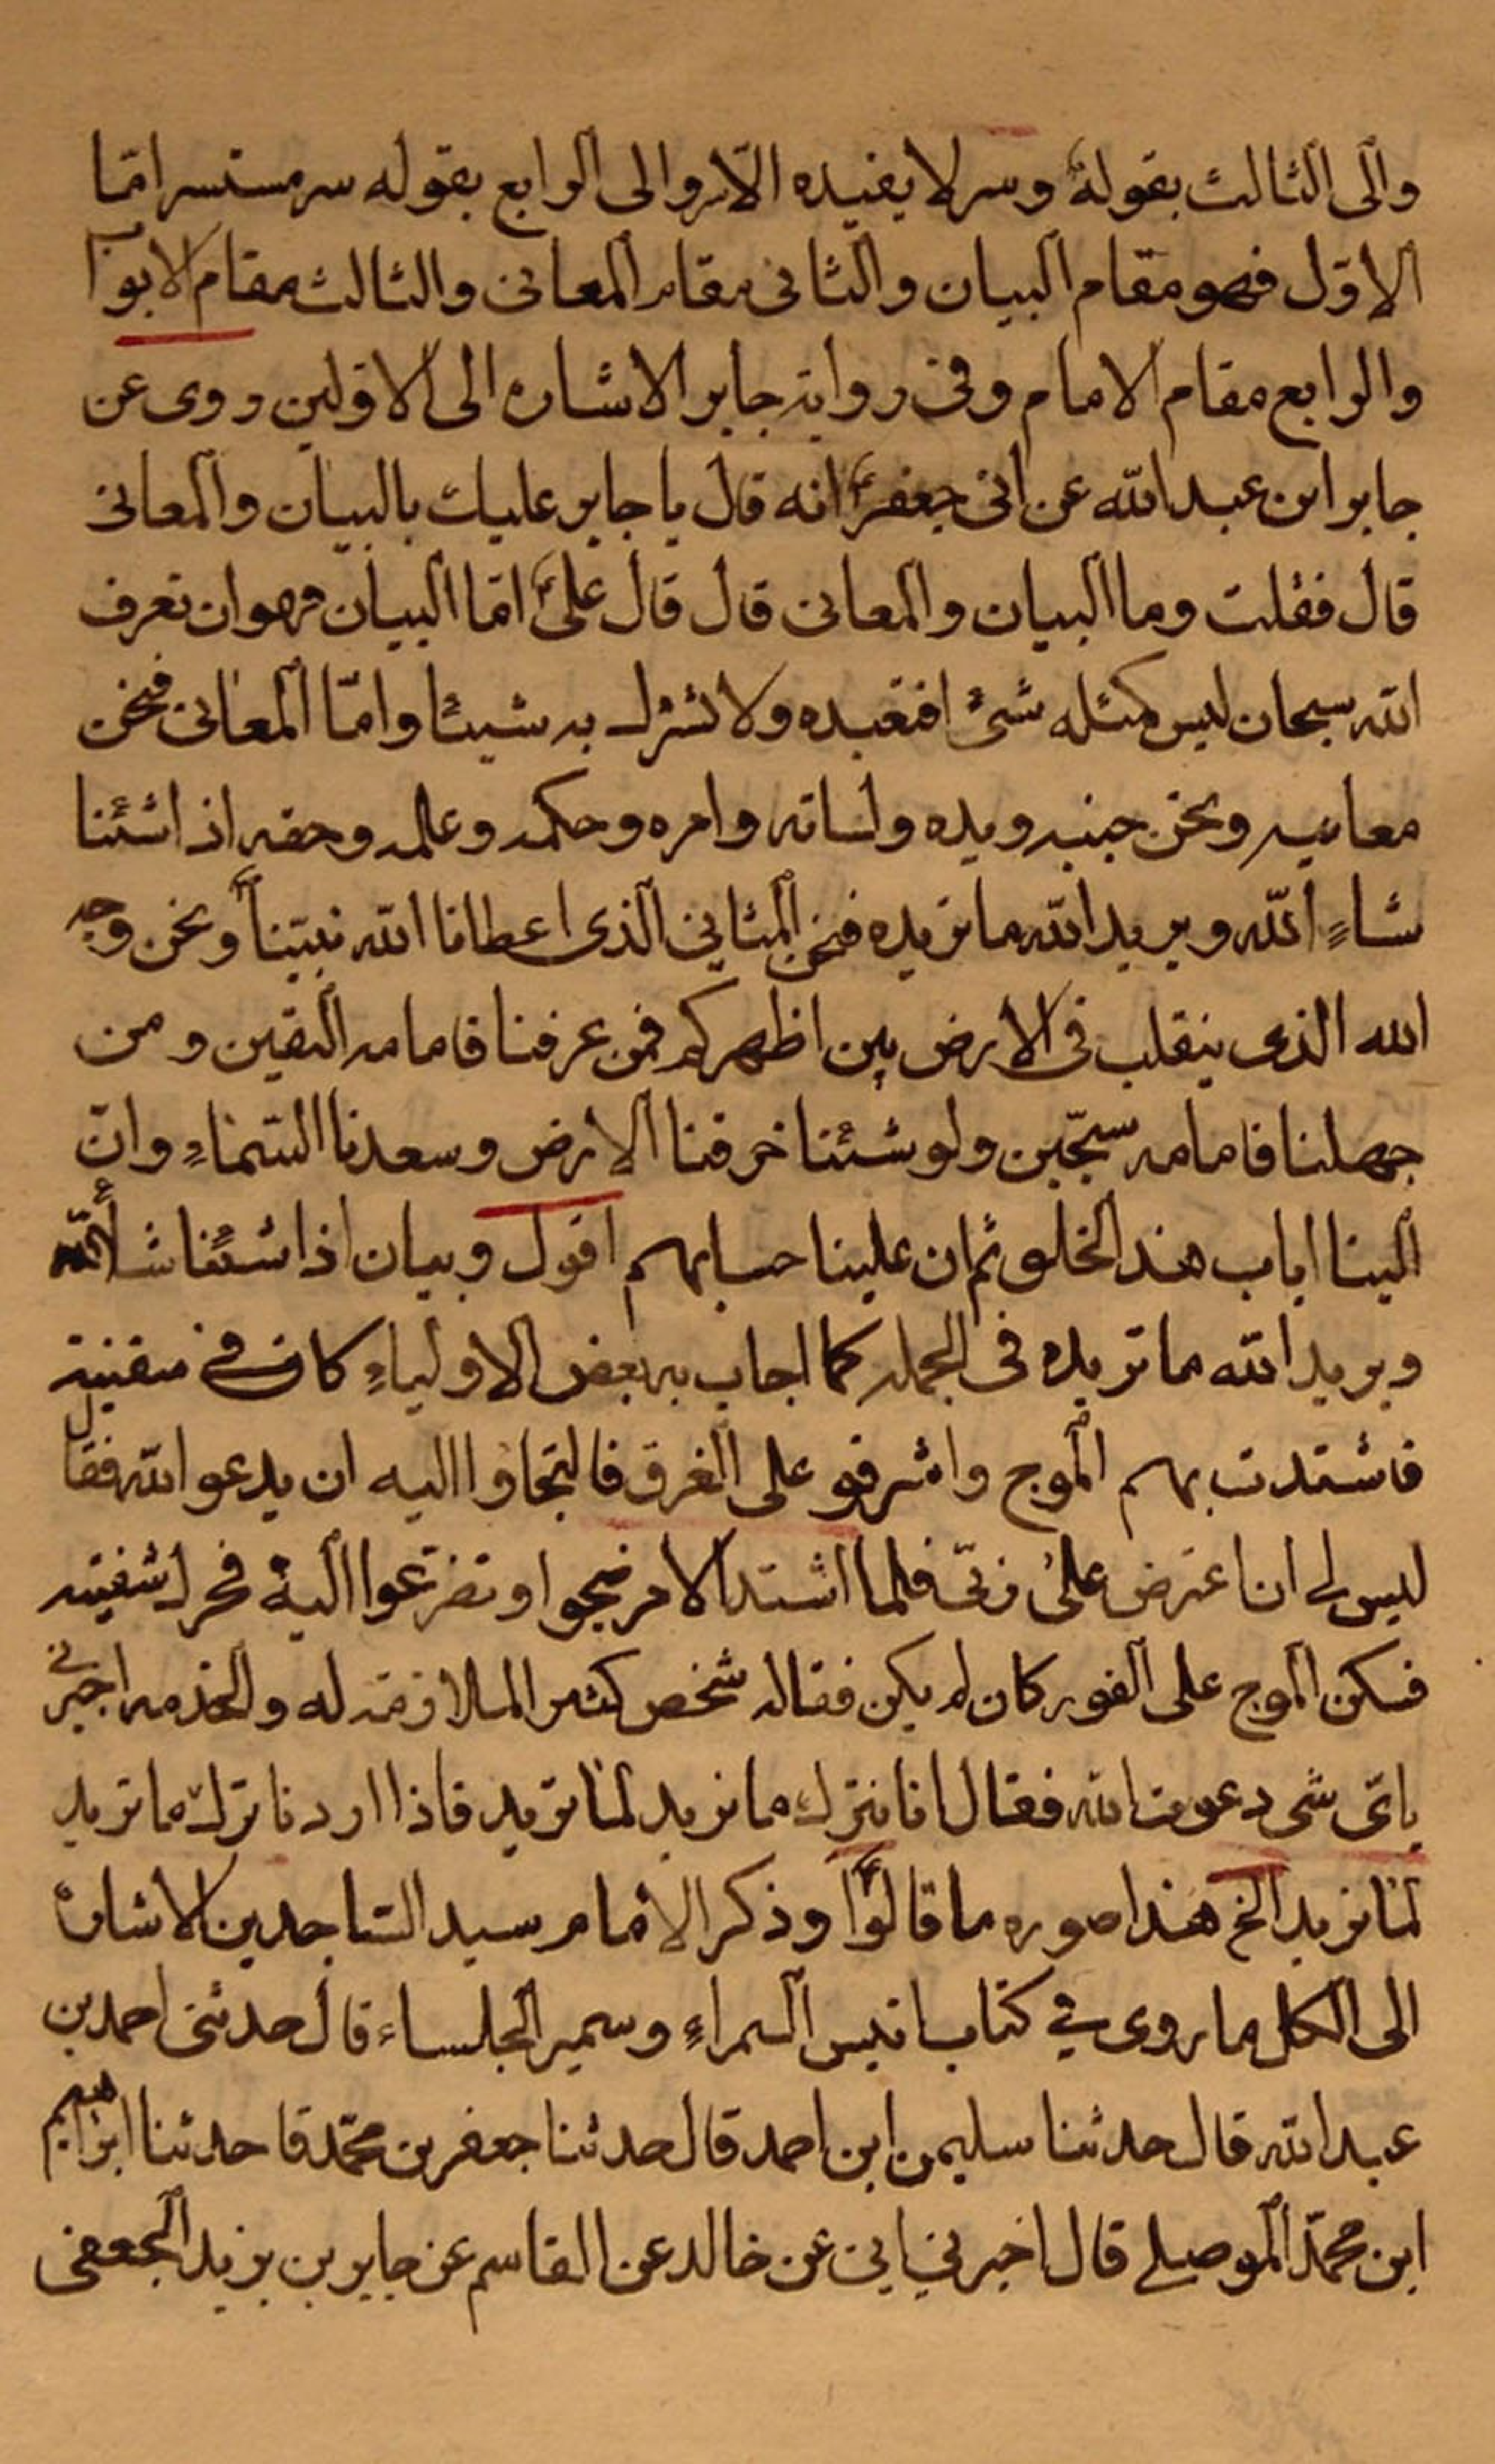 والى الثالث بقولهؑ وسر لا يفيده الا سر والى الرابع بقوله سر مستسر امّا
الاوّل فهو مقام البيان والثانى مقام المعانى والثالث مقام الابواب
والرابع مقام الامام وفى رواية جابر الاشاره الى الاولين روى عن
جابر ابن عبد الله عن ابى جعفرؑ انه قال يا جابر عليك بالبيان والمعانى
قال فقلت وما البيان والمعانى قال قال علىؑ امّا البيان فهو ان تعرف
الله سبحان ليس كمثله شئ افتعبده ولا تشرك به شيئا وامّا المعانى فنحن
معانيه ونحن جنبه ويده ولسانه وامره وحكمه وعلمه وحقه اذا شئنا
شاءِ الله ويريد الله ما نريده فنحن المثاني الذى اعطانا الله نبيّناؐ ونحن وجه
الله الذى ينقلب فى الارض بين اظهركم فمن عرفنا فامامه اليقين ومن
جهلنا فامامه سجّين ولو شئنا خرقنا الارض وسعدنا السّماءِ وانّ
الينا اياب هذا الخلق ثم ان علينا حسابهم اقول وبيان اذا شئنا شاء الله
ويريد الله ما نريده فى الجمله كما اجاب به بعض الاولياءِ كان في سفينة
فاشتدت بهم الموج واشرفو على الغرق فالتجاؤا اليه ان يدعو الله فقال
ليس لي ان اعترض على ربّى فلما اشتد الامر ضجوا وتضرّعوا اليه فحرك شفيته
فسكن الموج على الفور كان لم يكن فقاله شخص كثير الملازمة له والخدمه اخبرني
باىّ شى دعوت الله فقال انا نترك ما نريد لما يريد فاذا اردنا ترك ما يريد
لما نريد الخ هذا صوره ما قالواؑ وذكر الامام سيد السّاجدين الاشارة
الى الكل ما روى في كتاب انيس السمراءِ وسمير الجلساء قال حدثنى احمد بن
عبد الله قال حدثنا سليمن ابن احمد قال حدثنا جعفر بن محمّد قا حدثنا ابراهيم
ابن محمّد الموصلى قال اخبرني ابي عن خالد عن القاسم عن جابر بن يزيد الجعفى